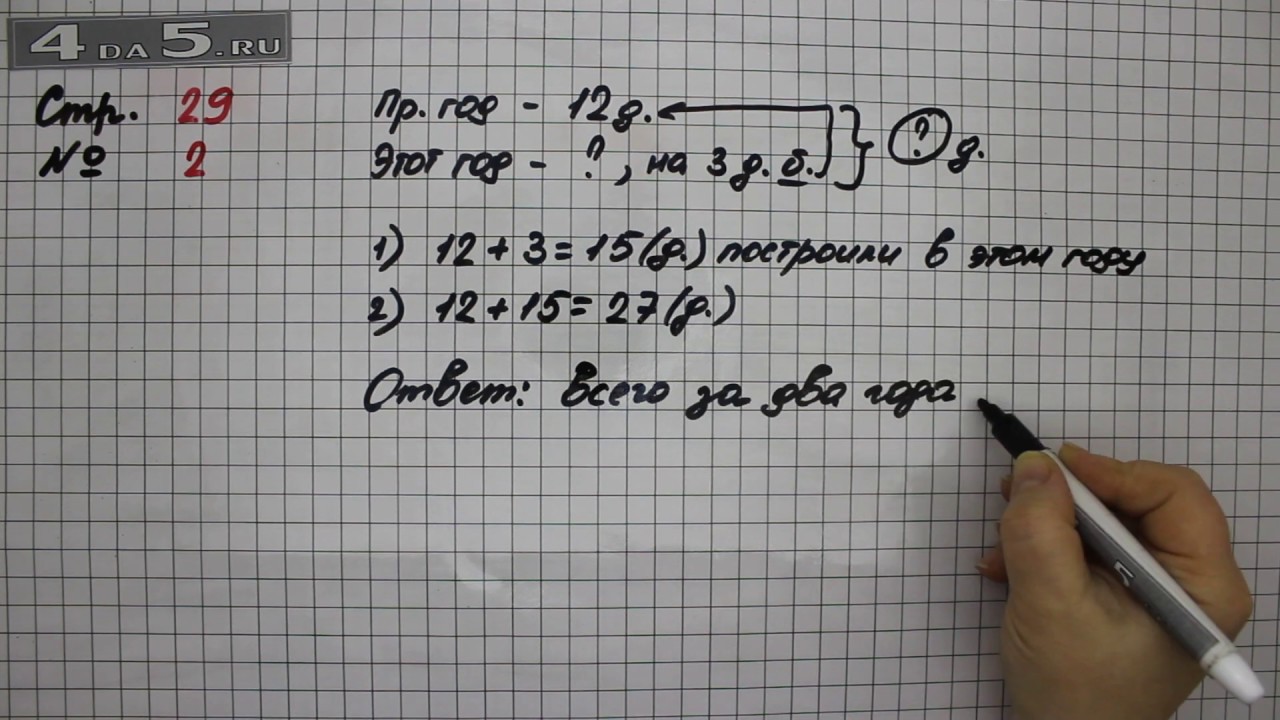 4DA5.RU
Стр. 29
№ 2
Пр. год - 12 д.
Этот год - ?, на 3 д. б. } ? д.
1) 12 + 3 = 15 (д.) построили в этом году
2) 12 + 15 = 27 (д.)
Ответ: всего за два года